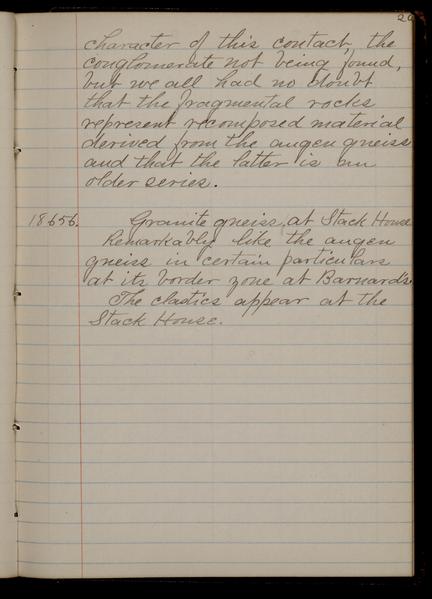 character of this contact, the
conglomerate not being found,
but we all had no doubt
that the fragmental rocks
represent recomposed material
derived from the augen gneiss
and that the latter is an
older series.
18656. Granite gneiss at Stack House
Remarkably like the augen
gneiss in certain particulars
at its border zone at Barnard's.
The clastics appear at the
Stack House.